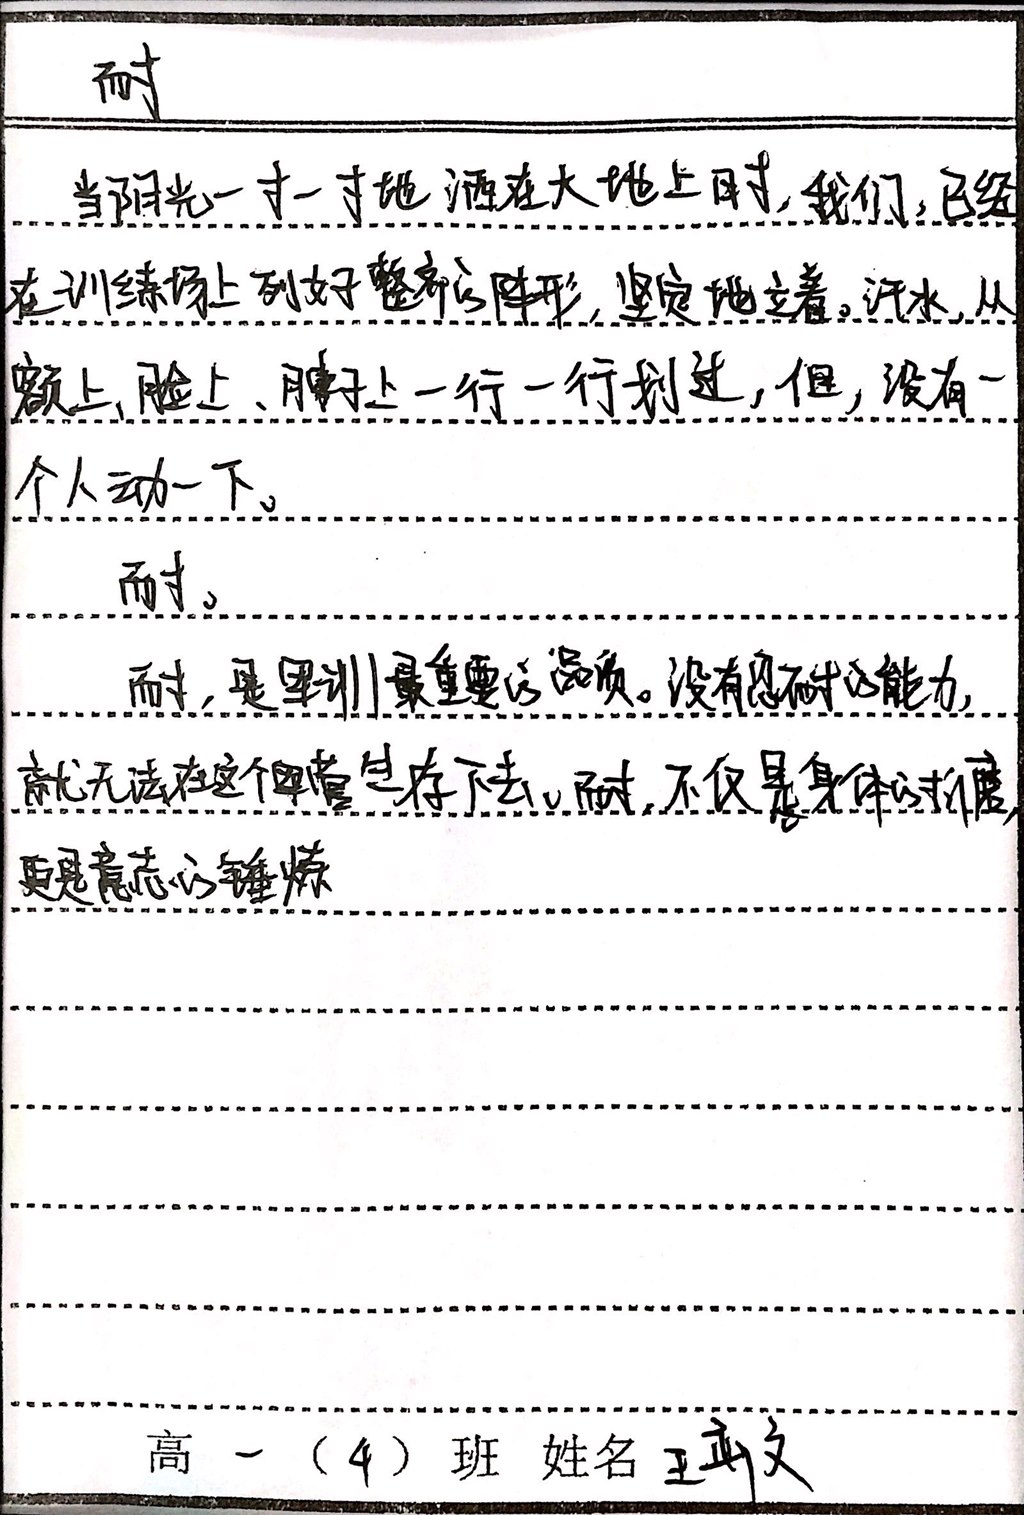 耐
当阳光一寸一寸地洒在大地上时，我们，已经
在训练场上列好整齐的阵形，坚定地立着。汗水，从
额上、脸上、脖子上一行一行划过，但，没有一
个人动一下。
耐。
耐，是军训最重要的品质。没有忍耐的能力，
就无法在这个军营生存下去。耐，不仅是身体的折磨，
更是意志的锤炼
高一（4）班 姓名 王 文